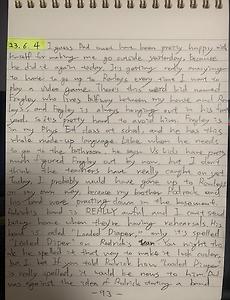 23.6.4 I guess Dad must have been pretty happy with
himself for making me go outside yesterday, because
he did it again today. It's getting really annoying
to have to go up to Rowley's every time I want to
play a video game. There's this weird kid named
Fregley who lives halfway between my house and Rowley's
and Fregley is always hanging out in his front
yard. So it's pretty hard to avoid him. Fregley is
in my Phys Ed class at school, and he has this
whole made-up language. Like when he needs
to go to the bathroom, he says Us kids have pretty
much figured Fregley out by now, but I don't
think the teachers have really caught on yet.
Today, I probably would have gone up to Rowley's
on my own anyway, because my brother Rodrick and
his band were practising down in the basement.
Rodrick's band is REALLY awful, and I can't stand
being home when they're having rehearsals. His
band is called "Loaded Diper", only it's spelled
"Löded Diper" on Rodrick's van. You might think
he spelled it that way to make it look cooler,
but I bet if you told Rodrick how "Loaded Diaper"
is really spelled, it would be news to him. Dad
was against the idea of Rodrick starting a band
-93-